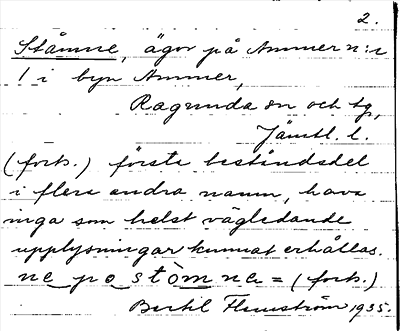 2.
Ståmne, ägor på Ammer n:r
1 i byn Ammer,
Ragunda sn och tg,
Jämtl. l.
(forts.) första beståndsdel
i flera andra namn, hava
inga som helst vägledande
upplysningar kunnat erhållas.
ne på stòmne = (forts.)
Bertil Flemström 1935.